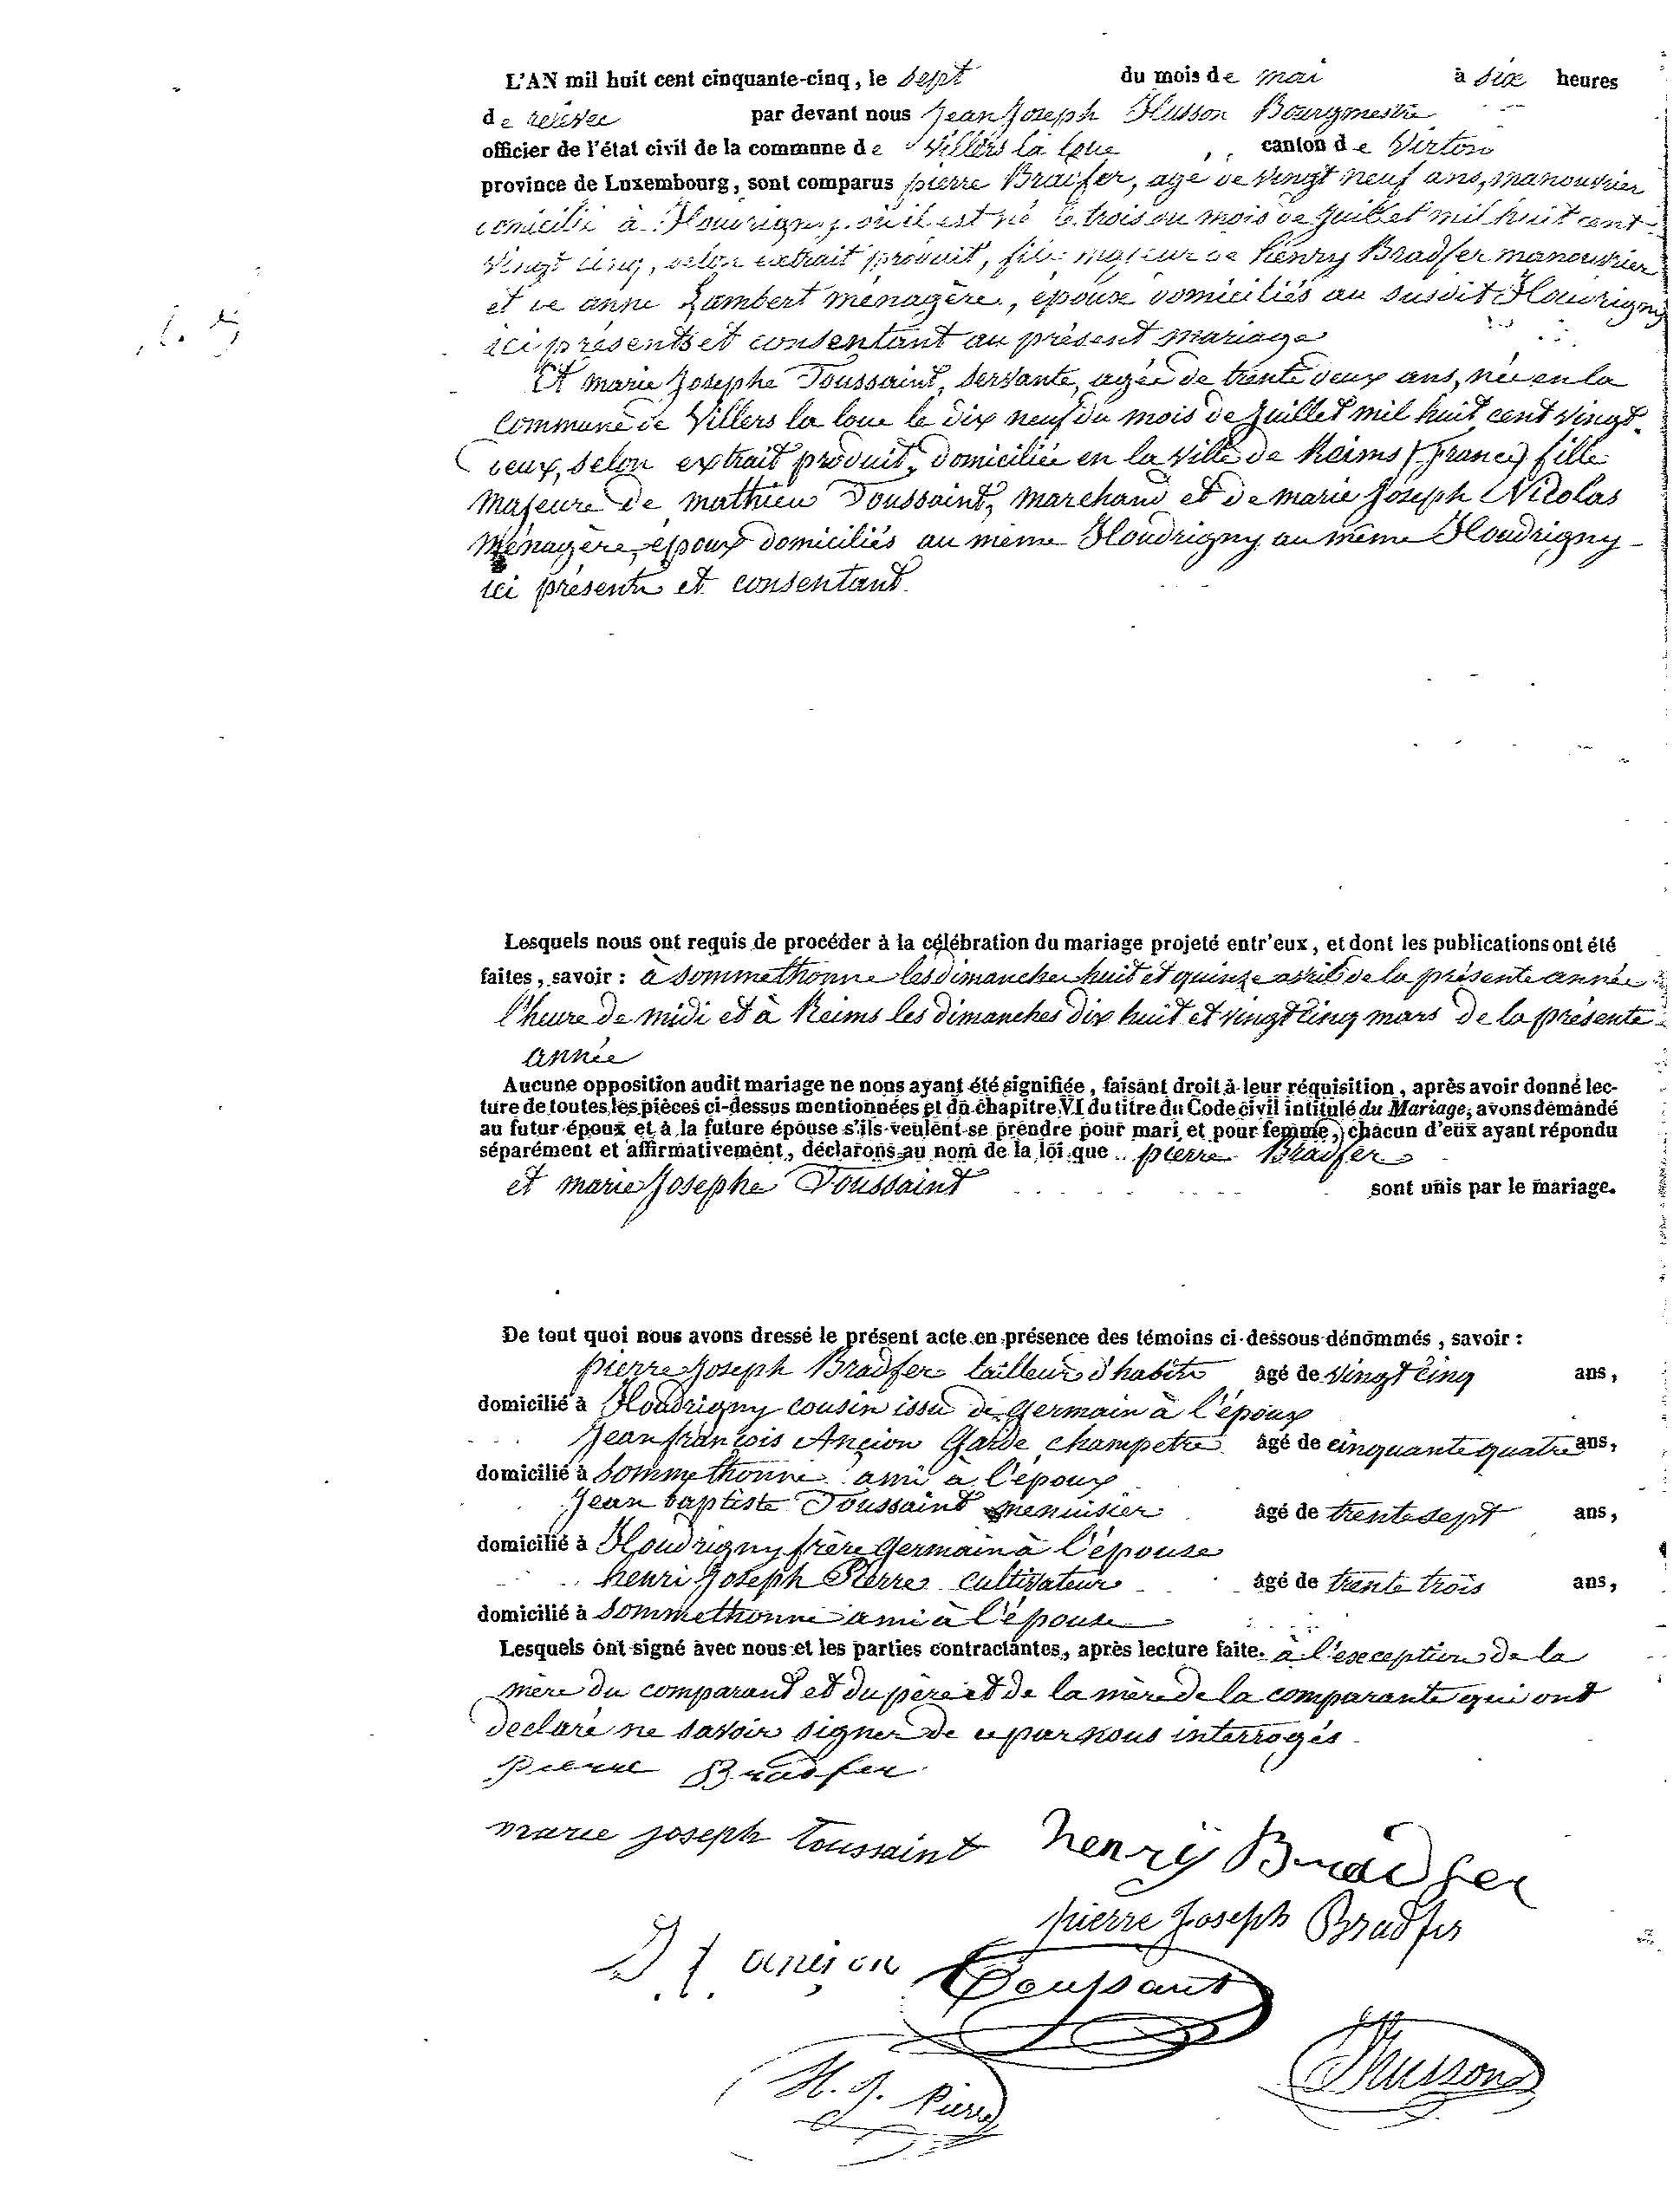 L'AN mil huit cent cinquante-cinq, le sept du mois de mai à six heures
de relevée par devant nous Jean Joseph Husson Bourgmestre
officier de l'état civil de la commune de Villers la loue canton de Virton
province de Luxembourg, sont comparus pierre Bradfer, agé de vingt neuf ans, manouvrier
domicilié à Houdrigny, où il est né le trois du mois de juillet mil huit cent
vingt cinq, selon extrait produit, fils majeur de henry Bradfer manouvrier
et de anne Lambert ménagère, époux domiciliés au susdit Houdrigny
ici présents et consentant au présent mariage
Et marie Josephe Toussaint, servante, agée de trente deux ans, née en la
commune de Villers la loue le dix neuf du mois de juillet mil huit cent vingt
deux, selon extrait produit, domiciliée en la ville de Reims (France) fille
majeure de mathieu Toussaint, marchand et de marie Joseph Nicolas
Ménagère, époux domiciliés au même Houdrigny au même Houdrigny
ici présents et consentant.
Lesquels nous ont requis de procéder à la célébration du mariage projeté entr'eux, et dont les publications ont été
faites, savoir : à Sommethonne les dimanches huit et quinze avril de la présente année
l'heure de midi et à Reims les dimanches dix huit et vingt cinq mars de la présente
année
Aucune opposition audit mariage ne nous ayant été signifiée, faisant droit à leur réquisition, après avoir donné lec-
ture de toutes les pièces ci-dessus mentionnées et du chapitre VI du titre du Code civil intitulé du Mariage, avons demandé
au futur époux et à la future épouse s'ils veulent se prendre pour mari et pour femme, chacun d'eux ayant répondu
séparément et affirmativement, déclarons au nom de la loi que pierre Bradfer
et marie Josephe Toussaint sont unis par le mariage.
De tout quoi nous avons dressé le présent acte en présence des témoins ci-dessous dénommés, savoir :
pierre Joseph Bradfer tailleur d'habits âgé de vingt cinq ans,
domicilié à Houdrigny cousin issu de germain à l'époux
Jean françois Ançion Garde champetre âgé de cinquante quatre ans,
domicilié à Sommethonne ami à l'époux
Jean baptiste Toussaint menuisier âgé de trente sept ans,
domicilié à Houdrigny frère germain à l'épouse
henri Joseph Pierre cultivateur âgé de trente trois ans,
domicilié à Sommethonne ami à l'épouse
Lesquels ont signé avec nous et les parties contractantes, après lecture faite. à l'exception de la
mère du comparant et du père et de la mère de la comparante qui ont
declaré ne savoir signer de ce par nous interrogés
pierre Bradfer
marie joseph toussaint henry Bradfer
pierre Joseph Bradfer
J f ançion Toussaint
H. J. Pierre Husson